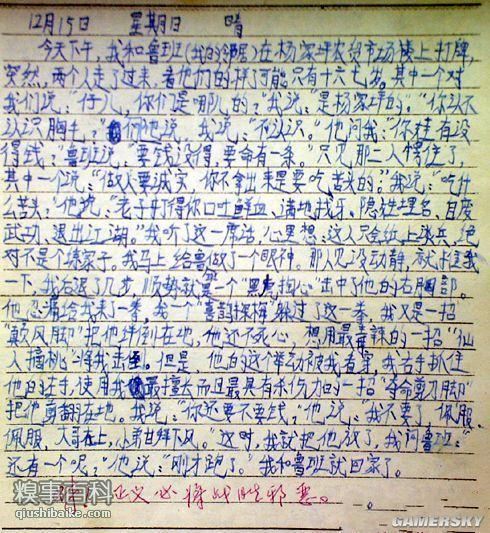 12月15日 星期日 晴
今天下午，我和鲁班（我的邻居）在杨家坪农贸市场楼上打牌，
突然，两个人走了过来，看他们的样可能只有十六七岁。其中一个对
我们说：“仔儿，你们是哪儿的？”我说：“是杨家坪的。”“你认不
认识胸手？”他说，我说：“不认识。”他问我：“你娃有没
得钱？”鲁班说：“要钱没得，要命有一条。”只见那二人愣住了，
其中一个说：“做人要诚实，你不拿出来是要吃苦头的。”我说：“吃什
么苦头？”他说：“老子打得你口吐鲜血、满地找牙、隐姓埋名、自废
武功、退出江湖。”我听了这一席话，心里想：这人只会纸上谈兵，绝
对不是个练家子。我马上给鲁做了个眼神。那人见没动静，就推我
一下，我后退了几步，顺势就是一个“黑虎掏心”击中了他的右胸部。
他忍痛给我来了一拳，我一个“喜鹊探梅”躲过了这一拳，我又是一招
“颠风脚”把他绊倒在地，他还不死心，想用最毒辣的一招“仙
人摘桃”将我击倒。但是，他的这个举动被我看穿，我右手抓住
他的左手，使用我最擅长而且最具有杀伤力的一招“夺命剪刀脚”
把他剪翻在地。我说：“你还要不要钱，”他说：“我不要了，佩服，
佩服，大哥在上，小弟甘拜下风。”这时，我就把他放了，我问鲁班：“
还有一个呢？”他说：“刚才跑了。”我和鲁班就回家了。
正义必将战胜邪恶。
糗事百科
qiushibaike.com
GAMERSKY